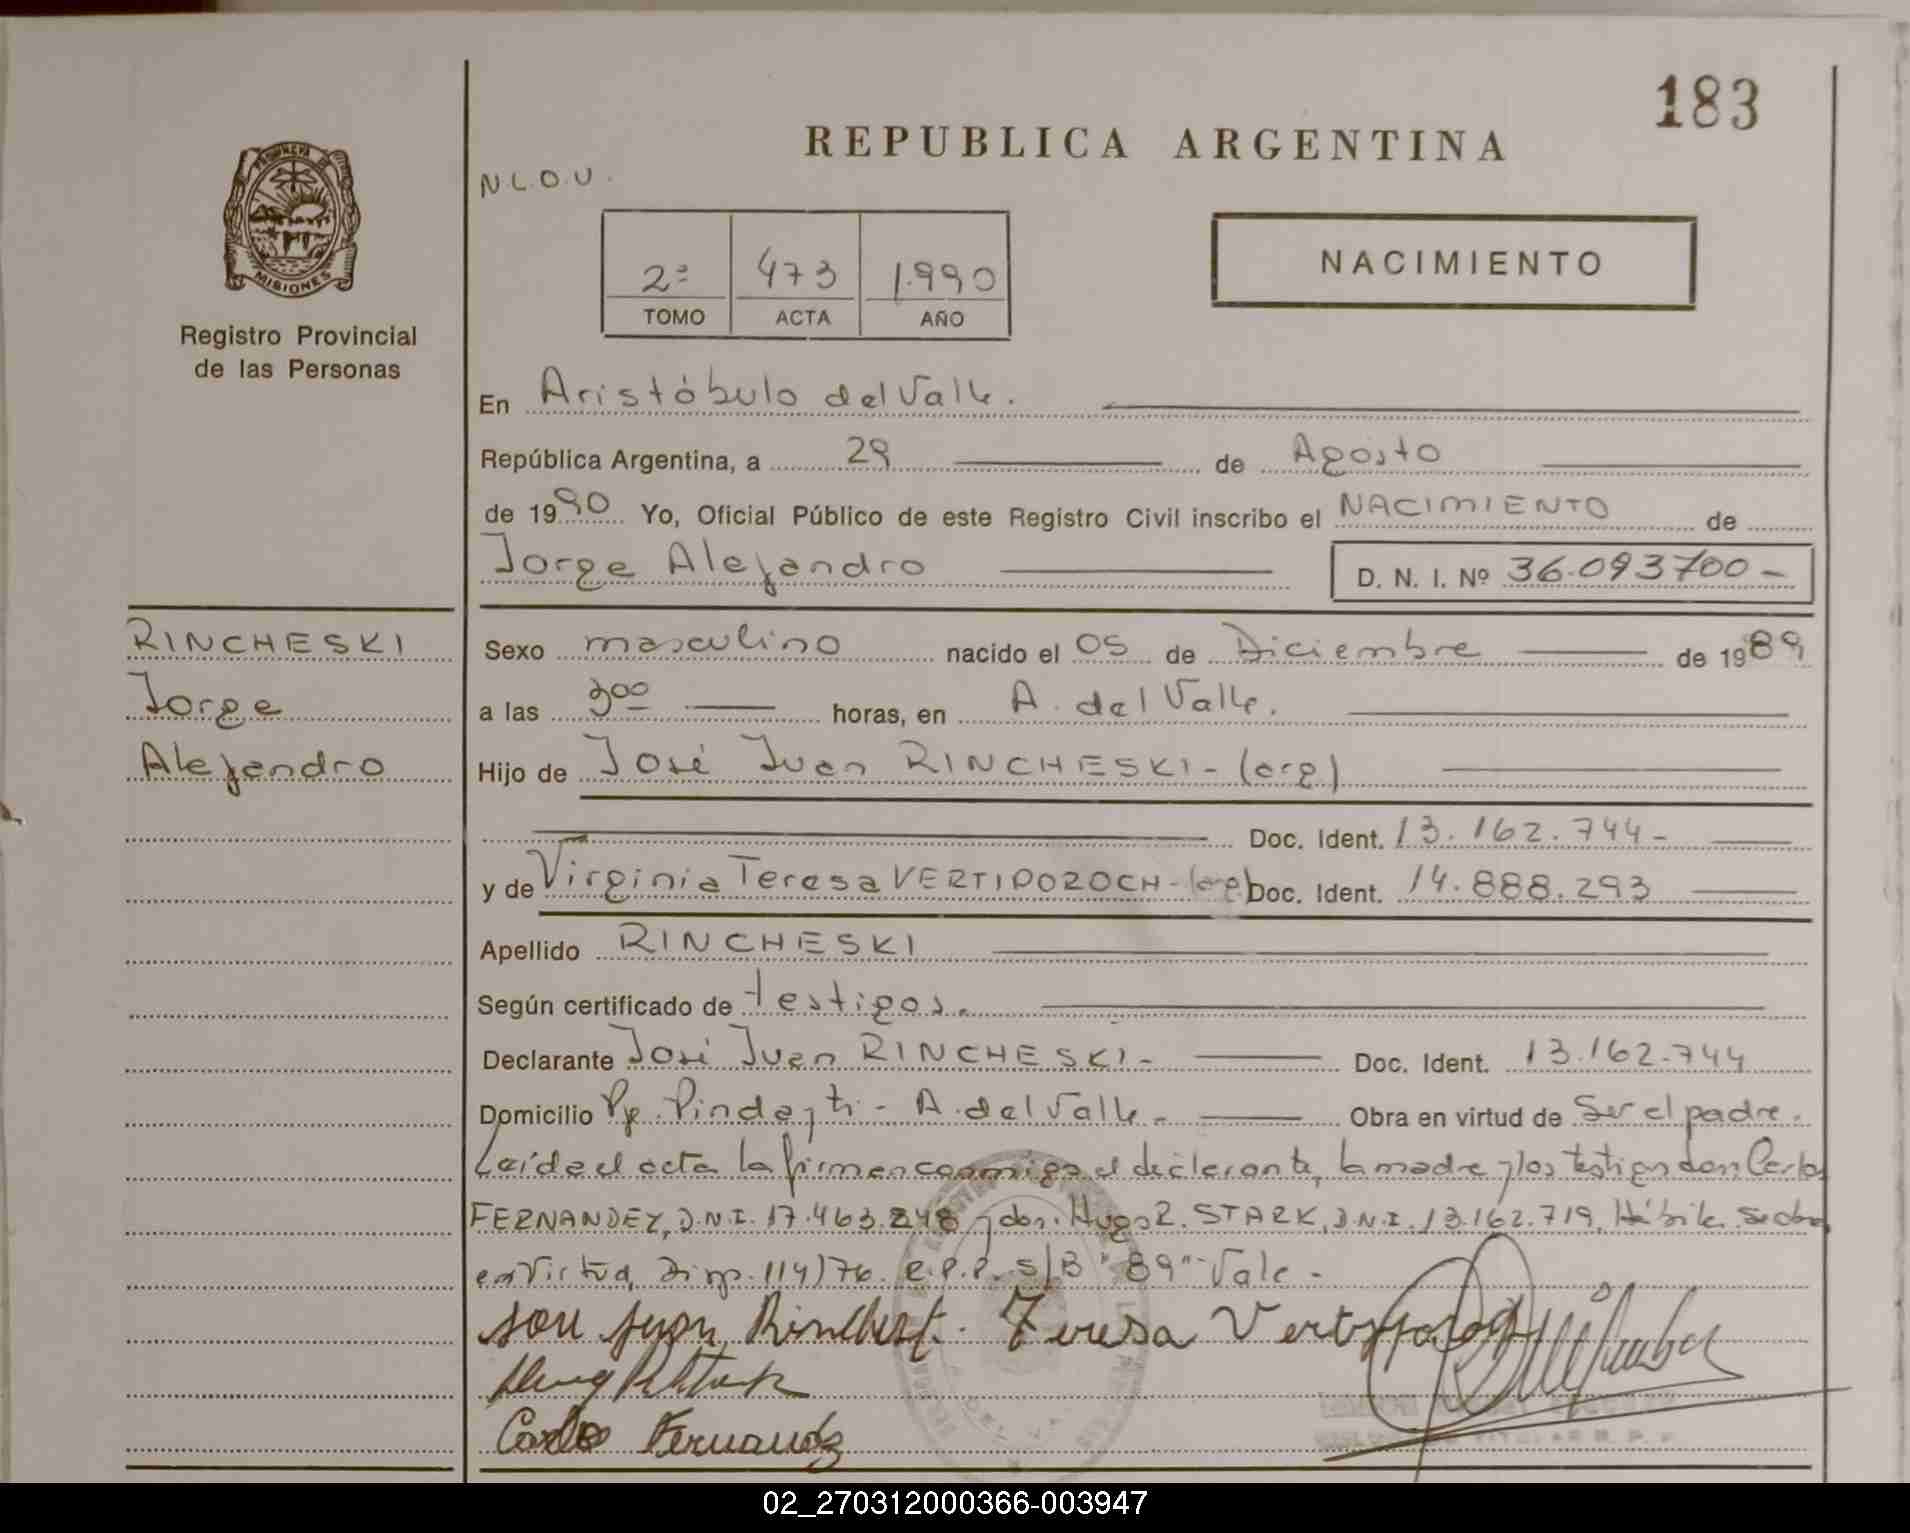 183
REPUBLICA ARGENTINA
N.L.O.U.
PROVINCIA DE
MISIONES
Registro Provincial
de las Personas
2ª 473 1.990
TOMO ACTA AÑO
NACIMIENTO
En Aristóbulo del Valle.
República Argentina, a 29 de Agosto
de 1990 Yo, Oficial Público de este Registro Civil inscribo el NACIMIENTO de
Jorge Alejandro D. N. I. Nº 36.093700-
RINCHESKI
Jorge
Alejandro
Sexo masculino nacido el 05 de Diciembre de 1989
a las 300 horas, en A. del Valle.
Hijo de José Juan RINCHESKI- (arg)
Doc. Ident. 13.162.744-
y de Virginia Teresa VERTIDOZOCH-(arg) Doc. Ident. 14.888.293
Apellido RINCHESKI
Según certificado de testigos.
Declarante José Juan RINCHESKI- Doc. Ident. 13.162.744
Domicilio Pje. Pindayti - A. del Valle- Obra en virtud de Ser el padre.
Leída el acta la firman conmigo el declarante, la madre y los testigos don: Carlos
FERNANDEZ, D.N.I. 17.463.248 y don: Hugo R. STARK, D.N.I. 13.162.719, Hábiles. Se obra
en Virtud, Disp. 114/76. R.P.P. s/B "89" Vale-
Teresa
Carlos Fernandez
02_270312000366-003947